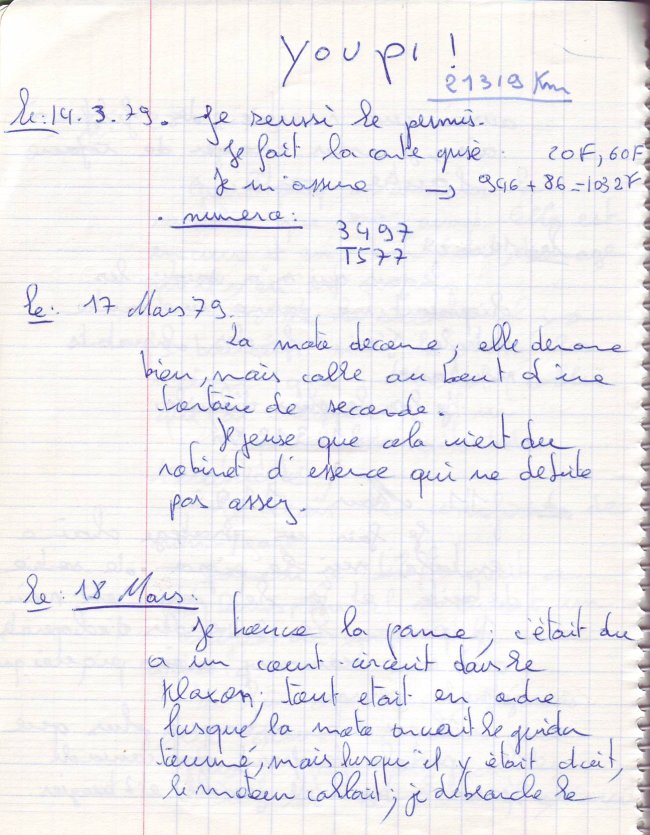 Youpi !
21319 Km
le: 14. 3. 79. Je reussi le permis.
Je fait la carte grise. 20F, 60F
Je m'assure → 946 + 86 = 1032F
. numero:
3497
TS77
le: 17 Mars 79.
La moto deconne, elle demare
bien, mais calle au bout d'une
trentaine de seconde.
Je pense que cela vient du
robinet d'essence qui ne debite
pas assez.
le: 18 Mars:
Je trouve la panne; c'était du
a un court-circuit dans le
Klaxon; tout etait en ordre
lusque la moto avait le guidon
tourné, mais lusqu'il y était droit,
le moteur callait; je debranche le